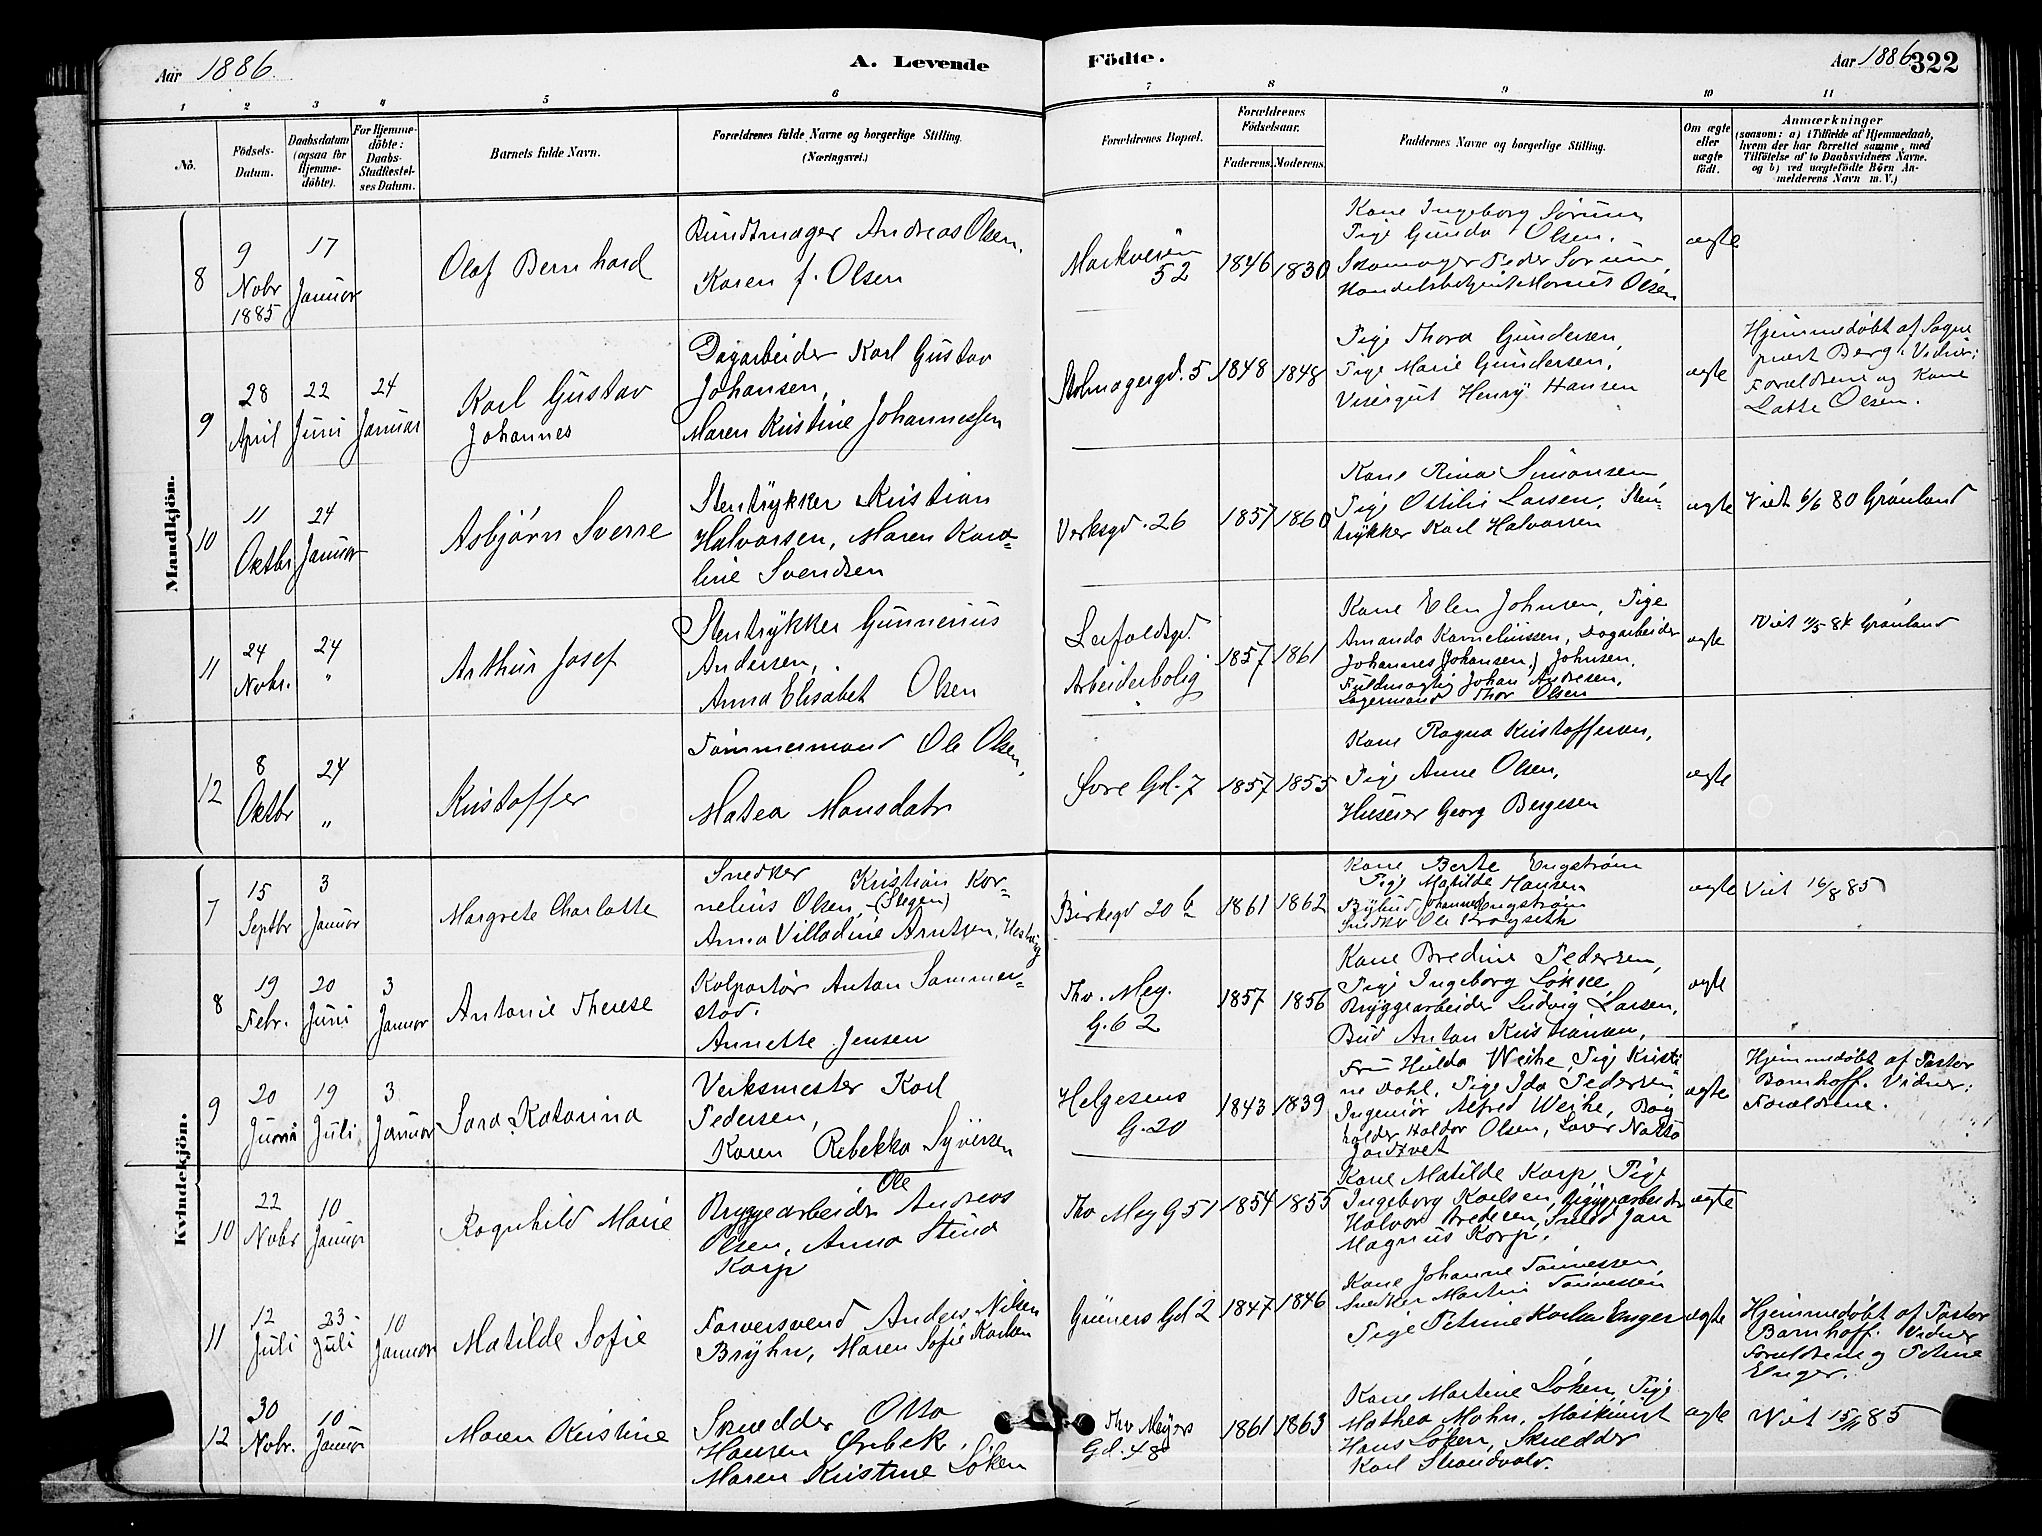 Aar 1886.
A. Levende
Födte.
Aar 1886
322
1 2 3 4 5 6 7 8 9 10 11
No.
Födsels-Datum.
Daabsdatum (ogsaa for Hjemme-döbte).
For Hjemme-döbte: Daabs-Stadfæstel-ses Datum.
Barnets fulde Navn.
Forældrenes fulde Navne og borgerlige Stilling. (Næringsvei.)
Forældrenes Bopæl.
Forældrenes Födselsaar.
Faderens.
Moderens.
Faddernes Navne og borgerlige Stilling.
Om ægte eller uægte födt.
Anmærkninger
(saasom: a) i Tilfælde af Hjemmedaab,
hvem der har forrettet samme, med
Tilföielse af to Daabsvidners Navne.
og b) ved uægtefödte Börn An-
melderens Navn m. V.)
Mandkjön.
8
9 Nobr 1885
17 Januar
Olaf Bernhard
Bundtmager Andreas Olsen,
Karen f. Olsen
Markveien
52
1846
1830
Kone Ingeborg Sørum
Pige Gunda Olsen.
Skomager Peder Sørum,
Handelsbetjent Olsen
ægte
9
28 April
22 Juni
24 Januar
Karl Gustav
Johannes
Dagarbeider Karl Gustav
Johansen,
Maren Kristine Johannessen
5
1848
1848
Pige Thora Gundersen,
Pige Marie Gundersen,
Visergut Henry Hansen
ægte
Hjemmedøbt af Sogne
præst Berg. Vidner:
Forældrene og Kone
Lotte Olsen.
10
11 Oktbr
24 Januar
Asbjørn Sverre
Stentrykker Kristian
Halvorsen, Maren Karo-
line Svendsen
Verksgd. 26
1857
1860
Kone Rina Simonsen
Pige Ottilie Larsen, Sten-
trykker Karl Halvorsen
ægte
Viet 6/6 80 Grønland
11
24 Nobr.
24 "
Arthur Josef
Stentrykker Gunnerius
Andersen,
Anna Elisabet Olsen
Arbeiderbolig
1857
1861
Kone Elen Johnsen, Pige
Amanda Korneliussen, Dagarbeider
Johannes (Johansen) Johnsen,
Fuldmægtig Johan Andresen,
Lagermand Thor Olsen
ægte
Viet 11/5 84 Grønland
12
8 Oktbr
24 "
Kristoffer
Tømmermand Ole Olsen,
Matea Monsdatr
Øvre Gd. 7
1857
1855
Kone Ragna Kristoffersen,
Pige Anne Olsen,
Huseier Georg Bergesen
ægte
Kvindekjön.
7
15 Septbr
3 Januar
Margrete Charlotte
Snedker Kristian Kor-
nelius Olsen, (Stegen)
Anna Villadine Arntsen,
Birksgd 20 b
1861
1862
Kone Berte Engstrøm
Pige Matilde Hansen
Bybud Johannes Engstrøm
Snedker Ole
ægte
Viet 16/8 85
8
19 Febr.
20 Juni
3 Januar
Antonie Therese
Kolportør Anton Sommer-
stad.
Annette Jensen
Thv. Mey.
G. 62
1857
1856
Kone Bredine Pedersen,
Pige Ingeborg Løkke,
Bryggearbeider Ludvig Larsen,
Bud Anton Kristiansen,
ægte
9
20 Juni
19 Juli
3 Januar
Sara Katarina
Verksmester Karl
Pedersen,
Karen Rebekka Syversen
Helgesens
G. 20
1843
1839
Fru Hulda Weihe, Pige Kristi-
ne Dahl, Pige Ida Pedersen
Ingeniør Alfred Weihe, Bog
holder Haldor Olsen,
Jordtvet
ægte
Hjemmedøbt af Pastor
Barnhoff. Vidner:
Forældrene.
10
22 Nobr
10 Januar
Ragnhild Marie
Bryggearbeider Ole Andreas
Olsen, Anna Stina
Korp
Thv Mey G 51
1854
1855
Kone Matilde Korp, Pige
Ingeborg Karlsen, Bryggearbeider
Halvor Bredesen, Smed Jan
Magnus Korp.
ægte
11
12 Juli
23 Juli
10 Januar
Matilde Sofie
Farversvend Anders Nilsen
Bryhn, Maren Sofie Karlsen
Grüners Gd 2
1847
1846
Kone Johanne Tønnessen,
Snedker Martin Tønnessen
Pige Petrine Enger
ægte
Hjemmedøbt af Pastor
Barnhoff. Vidner
Forældrene og Petrine
Enger.
12
30 Nobr.
10 Januar
Maren Kristine
Skrædder Otto
Hansen Ørbek,
Maren Kristine Løken
Thv Meyers
Gd. 48
1861
1863
Kone Martine Løken, Pige
Mathea Mohn, Maskinist
Hans Løken, Skrædder
Karl Strandvold.
ægte
Viet 15/11 85